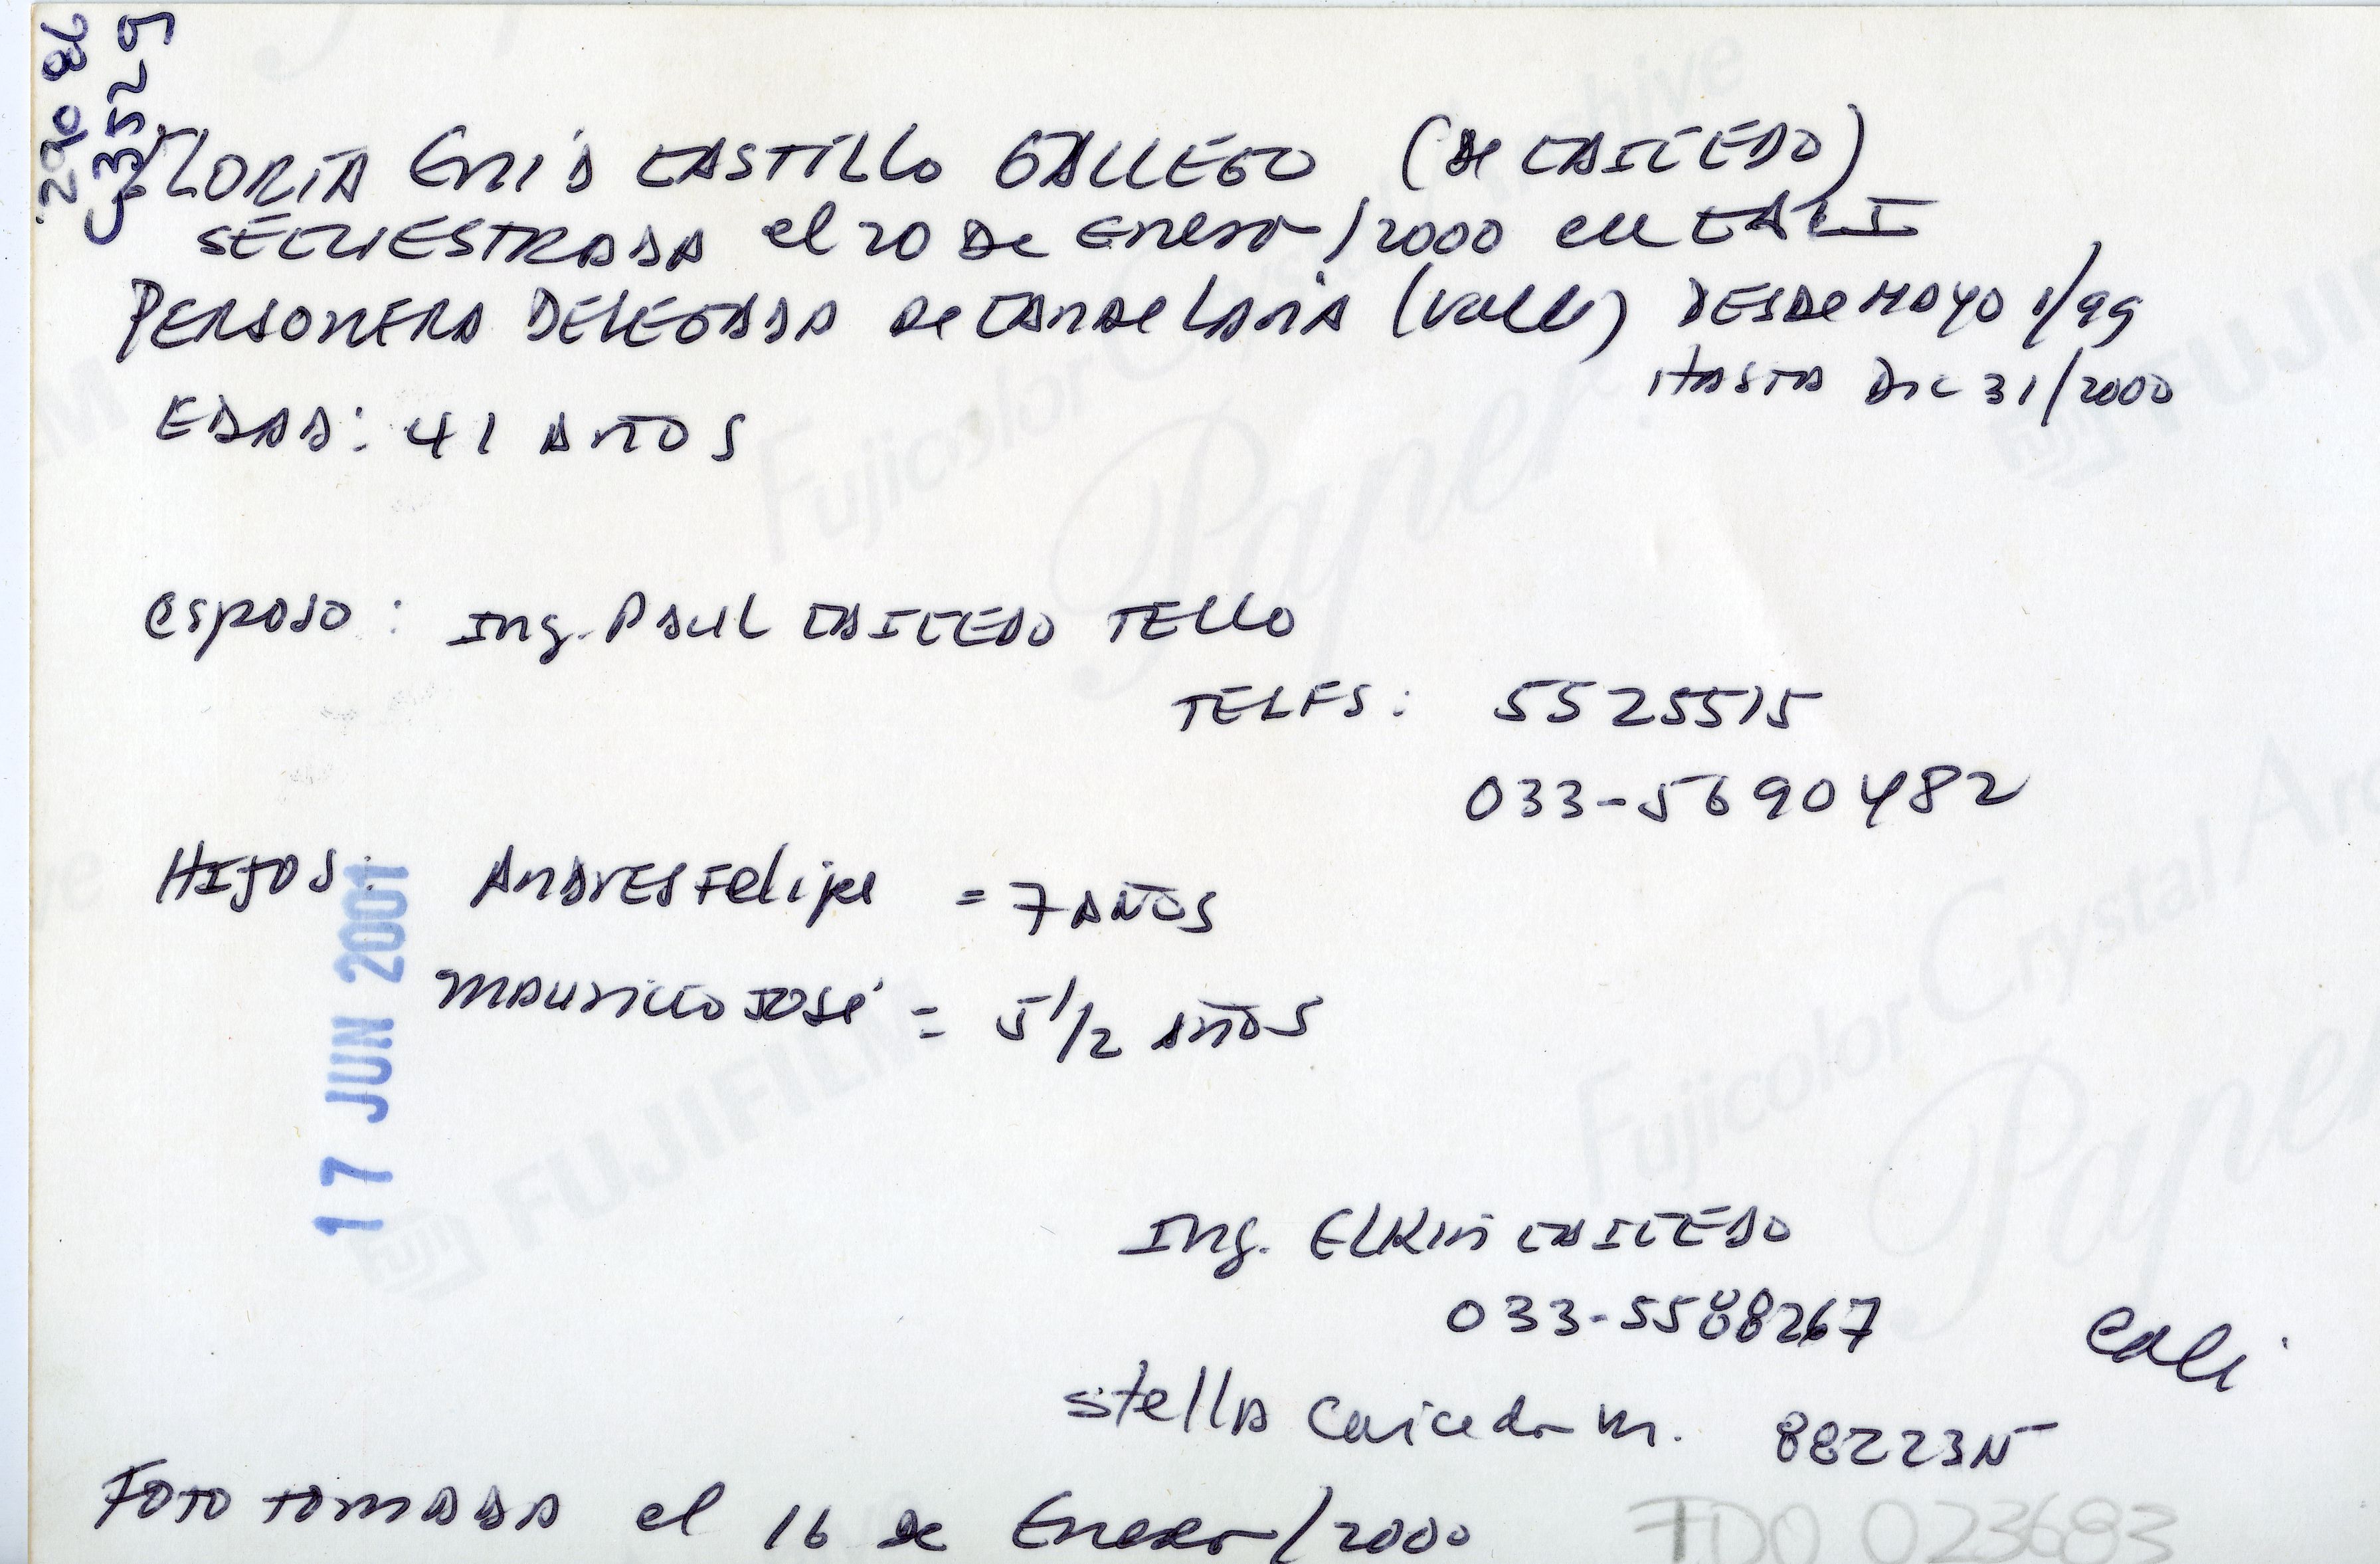 29086
C3529
GLORIA Enid CASTILLO GALLEGO (de CAICEDO)
SECUESTRADA el 20 de Enero/2000 en CALI
PERSONERA DELEGADA de CANDELARIA (Valle) DESDE MAYO 1/99
HASTA Dic 31/2000
EDAD: 41 AÑOS
esposo: Ing. PAUL CAICEDO TELLO
TELFS: 5525515
033-5690482
HIJOS: ANDRES Felipe = 7 AÑOS
MAURICIO JOSÉ = 5 1/2 AÑOS
17 JUN 2001
Ing. ELKIN CAICEDO
033-5588267
Cali
Stella Caicedo M.
FOTO TOMADA el 16 de Enero/2000
TDO 023683
Fujicolor Crystal Archive
Paper
FUJIFILM
Fujicolor Crystal Archive
Paper
FUJIFILM